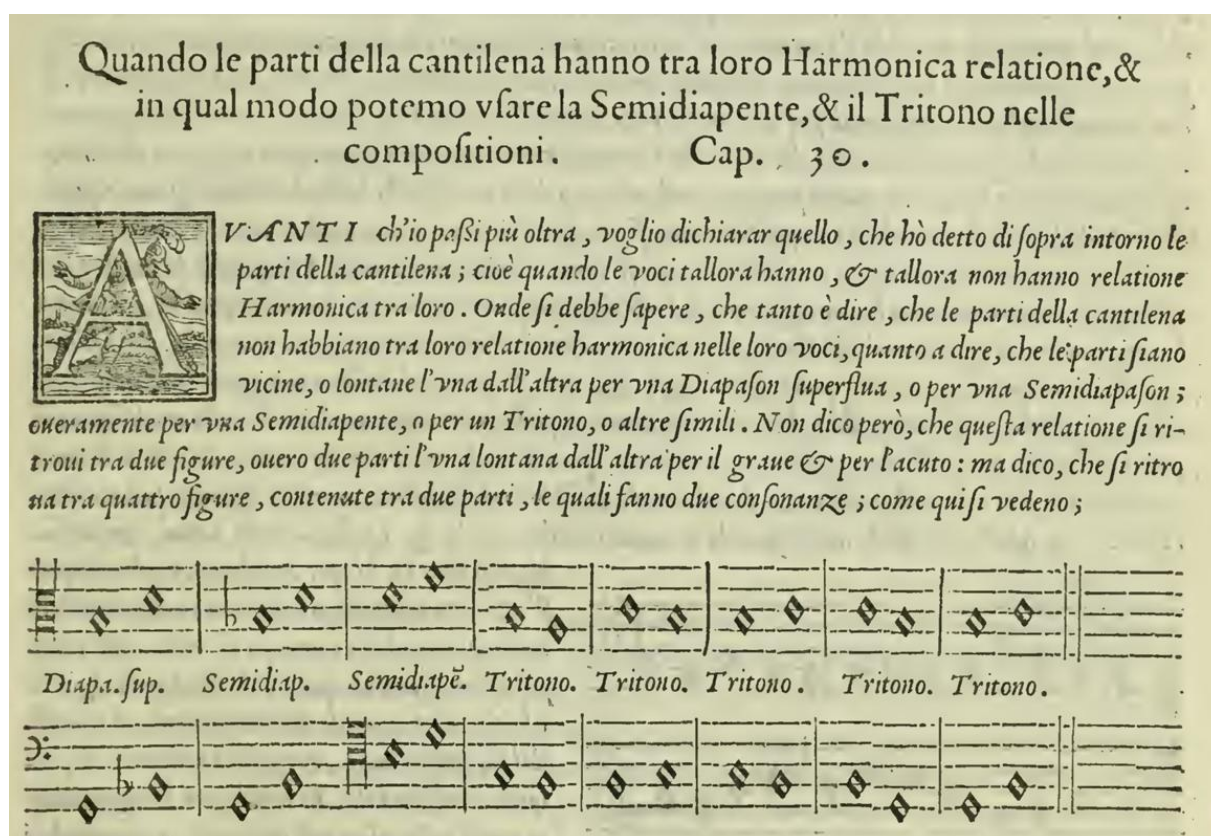 Quando le parti della cantilena hanno tra loro Harmonica relatione, &
in qual modo potemo vſare la Semidiapente, & il Tritono nelle
compoſitioni. Cap. 30.
AVANTI ch'io paſsi più oltra, voglio dichiarar quello, che hò detto di ſopra intorno le
parti della cantilena; cioè quando le voci tallora hanno, & tallora non hanno relatione
Harmonica tra loro. Onde ſi debbe ſapere, che tanto è dire, che le parti della cantilena
non habbiano tra loro relatione harmonica nelle loro voci, quanto a dire, che le parti ſiano
vicine, o lontane l'vna dall'altra per vna Diapaſon ſuperflua, o per vna Semidiapaſon;
oueramente per vna Semidiapente, o per un Tritono, o altre ſimili. Non dico però, che queſta relatione ſi ri-
troui tra due figure, ouero due parti l'vna lontana dall'altra per il graue & per l'acuto: ma dico, che ſi ritro
ua tra quattro figure, contenute tra due parti, le quali fanno due conſonanze; come qui ſi vedeno;
Diapa. ſup. Semidiap. Semidiapē. Tritono. Tritono. Tritono. Tritono. Tritono.